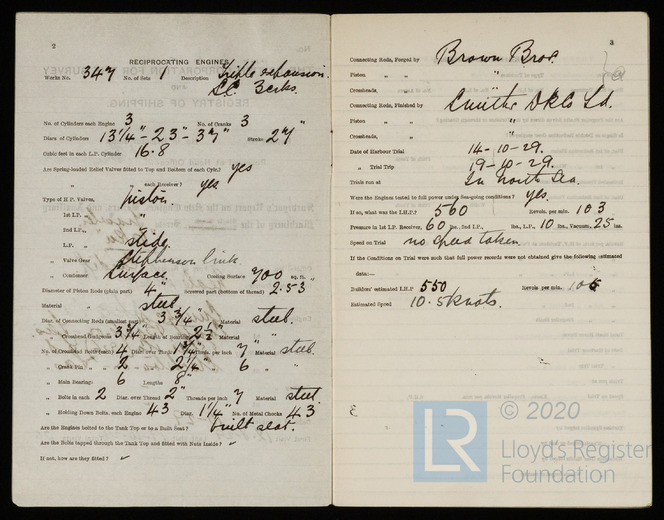 2
RECIPROCATING ENGINES
Works No. 347 No. of Sets 1 Description Triple expansion.
S.C. 3 Cranks.
No. of Cylinders each Engine 3 No. of Cranks 3
Diars. of Cylinders 13 1/4" - 23" - 37" Stroke 27"
Cubic feet in each L.P. Cylinder 16.8
Are Spring-loaded Relief Valves fitted to Top and Bottom of each Cylr.? yes
" " each Receiver? yes
Type of H.P. Valves, Piston
1st L.P. " "
2nd L.P. "
L.P. " slide.
Valve Gear Stephenson Link
Condenser Surface Cooling Surface 700 sq. ft.
Diameter of Piston Rods (plain part) 4" Screwed part (bottom of thread) 2.53
Material " steel
Diar. of Connecting Rods (smallest part) 3 3/4" Material steel.
" Crosshead Gudgeons 3 3/4" Length of Bearing 2 1/2" Material
No. of Crosshead Bolts (each) 4 Diar. over Thread 1 3/4" Threads per inch 7" Material steel.
" Crank Pin " 2 " 2 1/4" " 6 "
" Main Bearings 6 Lengths 8"
" Bolts in each 2 Diar. over Thread 2" Threads per inch 7 Material steel
" Holding Down Bolts, each Engine 43 Diar. 1 1/4" No. of Metal Chocks 43
Are the Engines bolted to the Tank Top or to a Built Seat? built seat.
Are the Bolts tapped through the Tank Top and fitted with Nuts Inside? ✓
If not, how are they fitted? ✓
3
Connecting Rods, Forged by Brown Bros.
Piston " " "
Crossheads, "
Connecting Rods, Finished by Smiths Dks Ld.
Piston " "
Crossheads, " "
Date of Harbour Trial 14-10-29.
" Trial Trip 19-10-29.
Trials run at In North Sea.
Were the Engines tested to full power under Sea-going conditions? yes.
If so, what was the I.H.P.? 560 Revols. per min. 103
Pressure in 1st L.P. Receiver, 60 lbs., 2nd L.P., lbs., L.P., 10 lbs., Vacuum, 25 ins.
Speed on Trial no speed taken
If the Conditions on Trial were such that full power records were not obtained give the following estimated
data:—
Builders' estimated I.H.P. 550 Revols. per min. 105
Estimated Speed 10.5 knots.
© 2020
LR
Lloyd's Register
Foundation